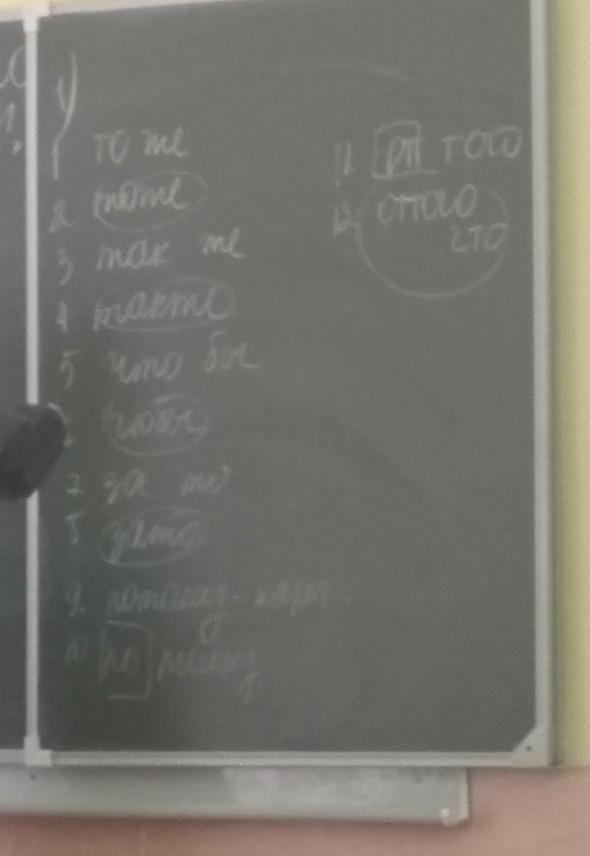 1 то же
2 тоже
3 так же
4 также
5 что бы
чтобы
7 за то
зато
9. потому - нареч.
по тому
11 от того
12 оттого
что